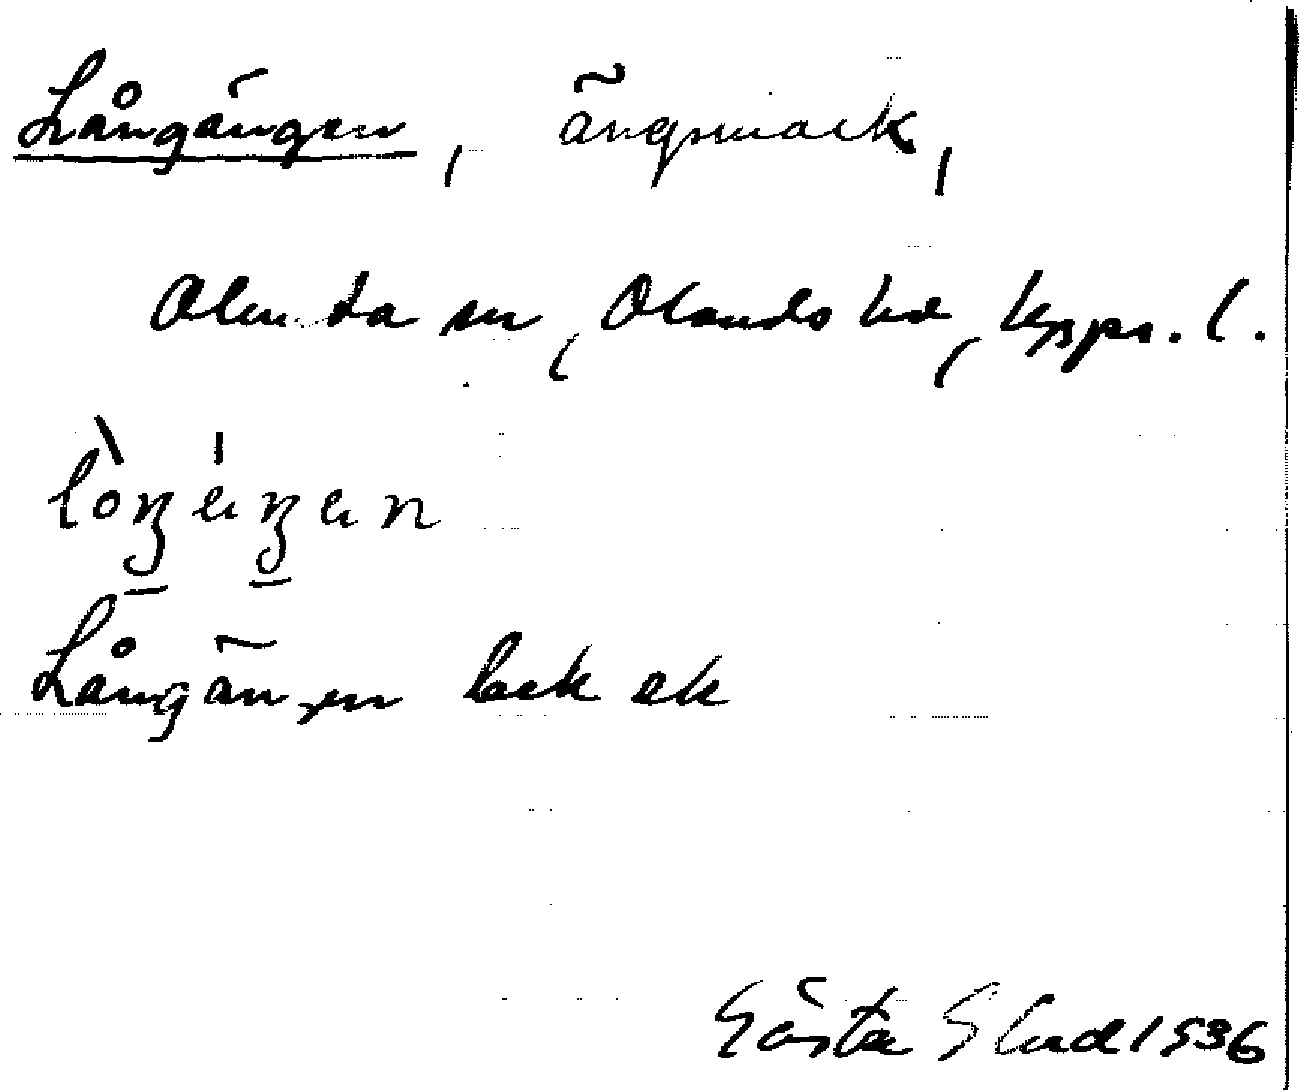 Långängen, ängsmark,
Alunda sn, Olands hd, Upps. l.
Långängen back ek
Gösta 1936